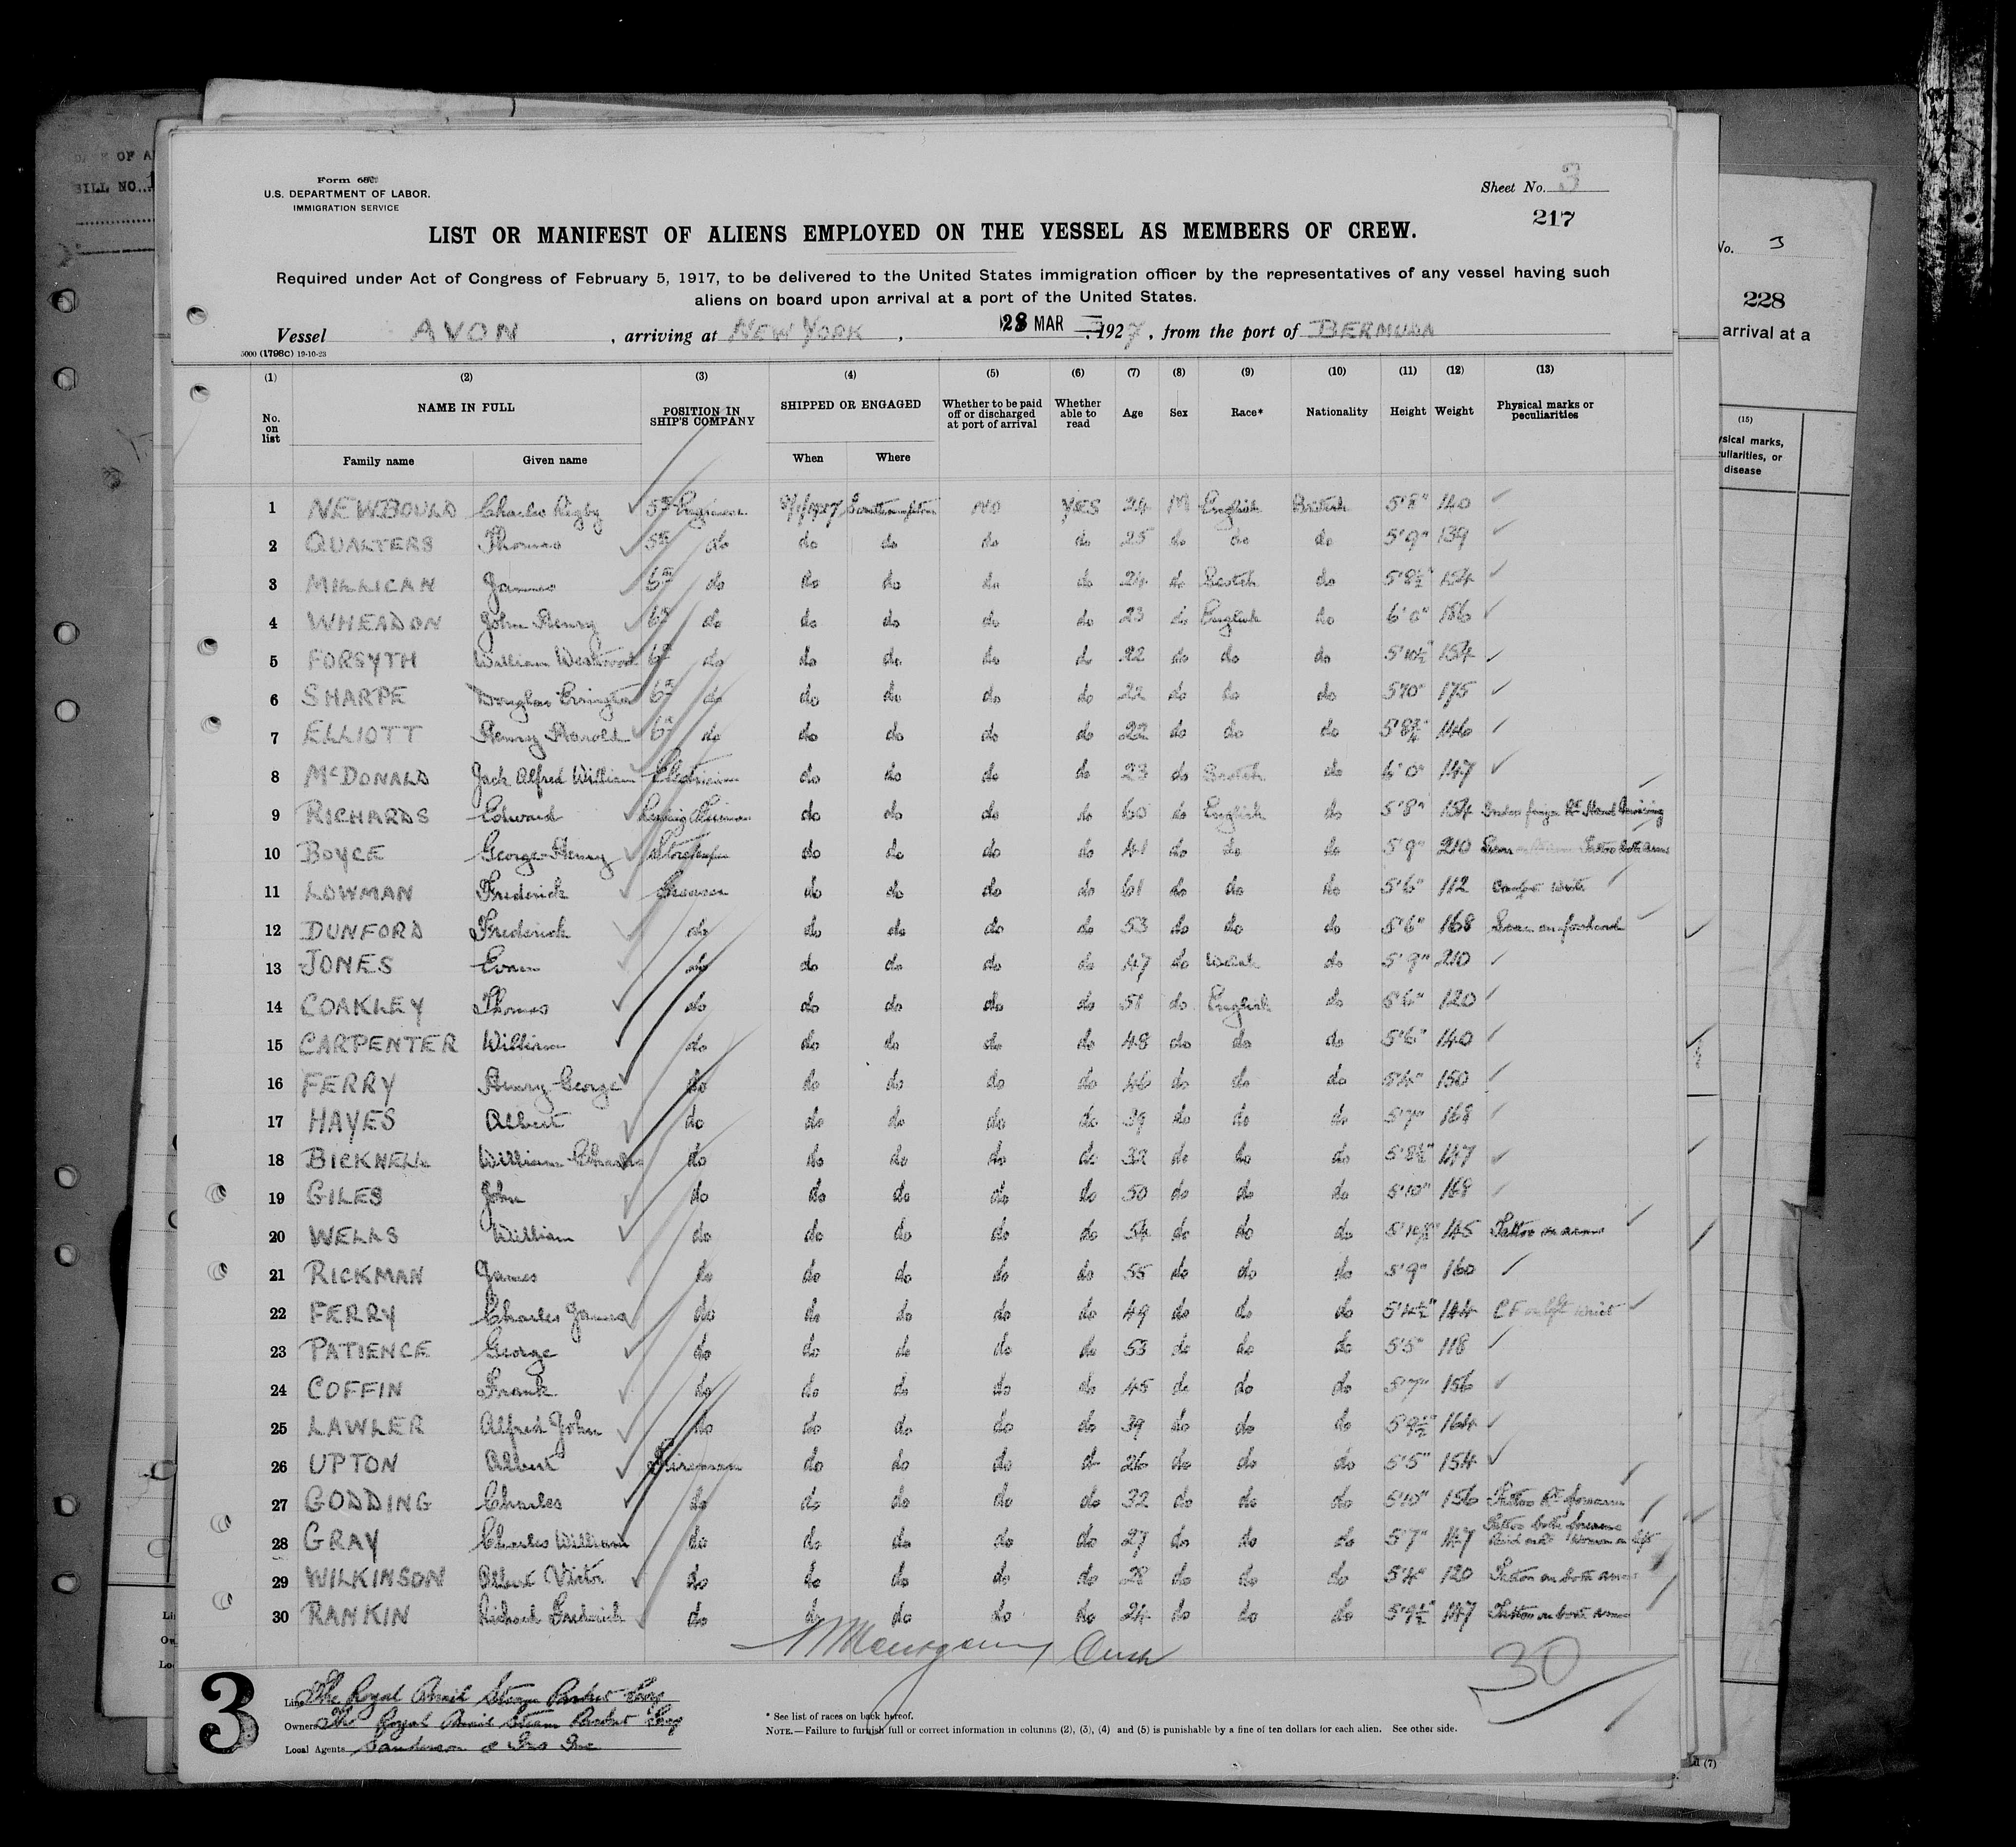 Form 680
U.S. DEPARTMENT OF LABOR.
IMMIGRATION SERVICE
Sheet No. 3
217
LIST OR MANIFEST OF ALIENS EMPLOYED ON THE VESSEL AS MEMBERS OF CREW.
Required under Act of Congress of February 5, 1917, to be delivered to the United States immigration officer by the representatives of any vessel having such
aliens on board upon arrival at a port of the United States.
Vessel AVON , arriving at NEW YORK , 28 MAR , 1927, from the port of BERMUDA
5000 (1798c) 19-10-23
(1) (2) (3) (4) (5) (6) (7) (8) (9) (10) (11) (12) (13)
No. on list NAME IN FULL POSITION IN SHIP'S COMPANY SHIPPED OR ENGAGED Whether to be paid off or discharged at port of arrival Whether able to read Age Sex Race* Nationality Height Weight Physical marks or peculiarities
Family name Given name When Where
1 NEWBOULD Charles Rigby 5th Engineer Southampton NO YES 24 M English British 5'8" 140
2 QUALTERS Thomas 5th do do do do do 25 do do do 5'9" 139
3 MILLICAN James 6th do do do do do 24 do Scotch do 5'8½" 154
4 WHEADON John Henry 6th do do do do do 23 do English do 6'0" 186
5 FORSYTH William Westwood 6th do do do do do 22 do do do 5'10½" 154
6 SHARPE Douglas Errington 6th do do do do do 22 do do do 5'10" 175
7 ELLIOTT Henry Harold 6th do do do do do 22 do do do 5'8¾" 146
8 McDONALD Jack Alfred William Electrician do do do do 23 do Scotch do 6'0" 147
9 RICHARDS Edward Leading Fireman do do do do 60 do English do 5'8" 154 finger Rt Hand Missing
10 BOYCE George Henry Storekeeper do do do do 41 do do do 5'9" 210 Tattoo both arms
11 LOWMAN Frederick Greaser do do do do 61 do do do 5'6" 112
12 DUNFORD Frederick do do do do do 53 do do do 5'6" 168 Scar on forehead
13 JONES Evan do do do do do 47 do Welsh do 5'9" 210
14 COAKLEY Thomas do do do do do 51 do English do 5'6" 120
15 CARPENTER William do do do do do 48 do do do 5'6" 140
16 FERRY Henry George do do do do do 46 do do do 5'4" 150
17 HAYES Albert do do do do do 39 do do do 5'7" 168
18 BICKNELL William Charles do do do do do 32 do do do 5'8½" 147
19 GILES John do do do do do 50 do do do 5'10" 168
20 WELLS William do do do do do 54 do do do 145 Tattoo on arms
21 RICKMAN James do do do do do 55 do do do 5'9" 160
22 FERRY Charles James do do do do do 49 do do do 5'4½" 144 C F on left wrist
23 PATIENCE George do do do do do 53 do do do 5'5" 118
24 COFFIN Frank do do do do do 45 do do do 5'7" 156
25 LAWLER Alfred John do do do do do 39 do do do 5'9½" 164
26 UPTON Albert Fireman do do do do 26 do do do 5'5" 154
27 GODDING Charles do do do do do 32 do do do 5'10" 156 Tattoo Rt forearm
28 GRAY Charles William do do do do do 27 do do do 5'7" 147 Tattoo both forearms Woman on left
29 WILKINSON Albert Victor do do do do do 28 do do do 5'4" 120 Tattoo on both arms
30 RANKIN Richard Frederick do do do do do 24 do do do 5'9½" 147 Tattoo on both arms
30
3
Line The Royal Mail Steam Packet Coy
Owners The Royal Mail Steam Packet Coy
Local Agents Sanderson & Son Inc
* See list of races on back hereof.
NOTE.—Failure to furnish full or correct information in columns (2), (3), (4) and (5) is punishable by a fine of ten dollars for each alien. See other side.
BILL NO.
No. 3
228
arrival at a
(15)
disease
(7)